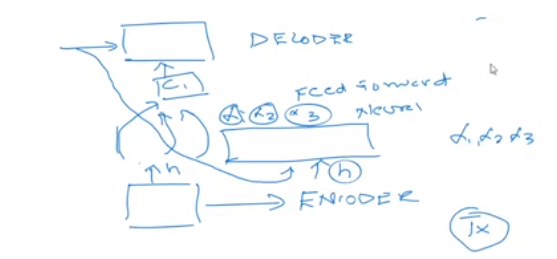 DECODER
C₁
Feed Forward
Neural
α₁ α₂ α₃
α₁, α₂ α₃
h
h
ENCODER
Tx